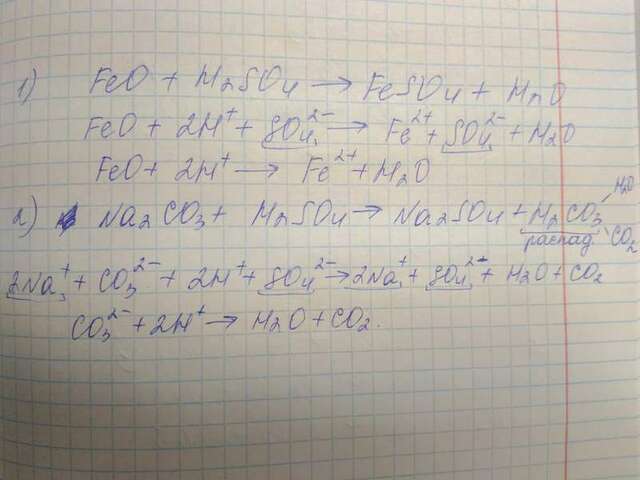 1) FeO + H₂SO₄ → FeSO₄ + H₂O
FeO + 2H⁺ + SO₄²⁻ → Fe²⁺ + SO₄²⁻ + H₂O
FeO + 2H⁺ → Fe²⁺ + H₂O
2) Na₂CO₃ + H₂SO₄ → Na₂SO₄ + H₂CO₃
H₂O
CO₂
распад.
2Na⁺ + CO₃²⁻ + 2H⁺ + SO₄²⁻ → 2Na⁺ + SO₄²⁻ + H₂O + CO₂
CO₃²⁻ + 2H⁺ → H₂O + CO₂.